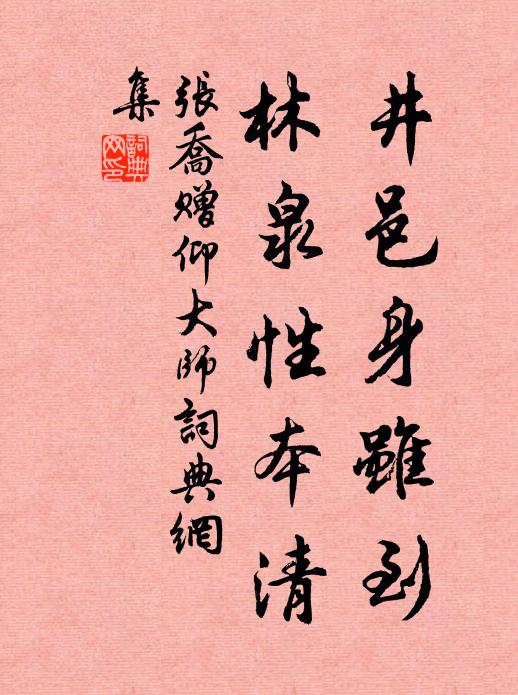 井邑身雖到
林泉性本清
張喬贈仰大師詞典網
集
詞典網印